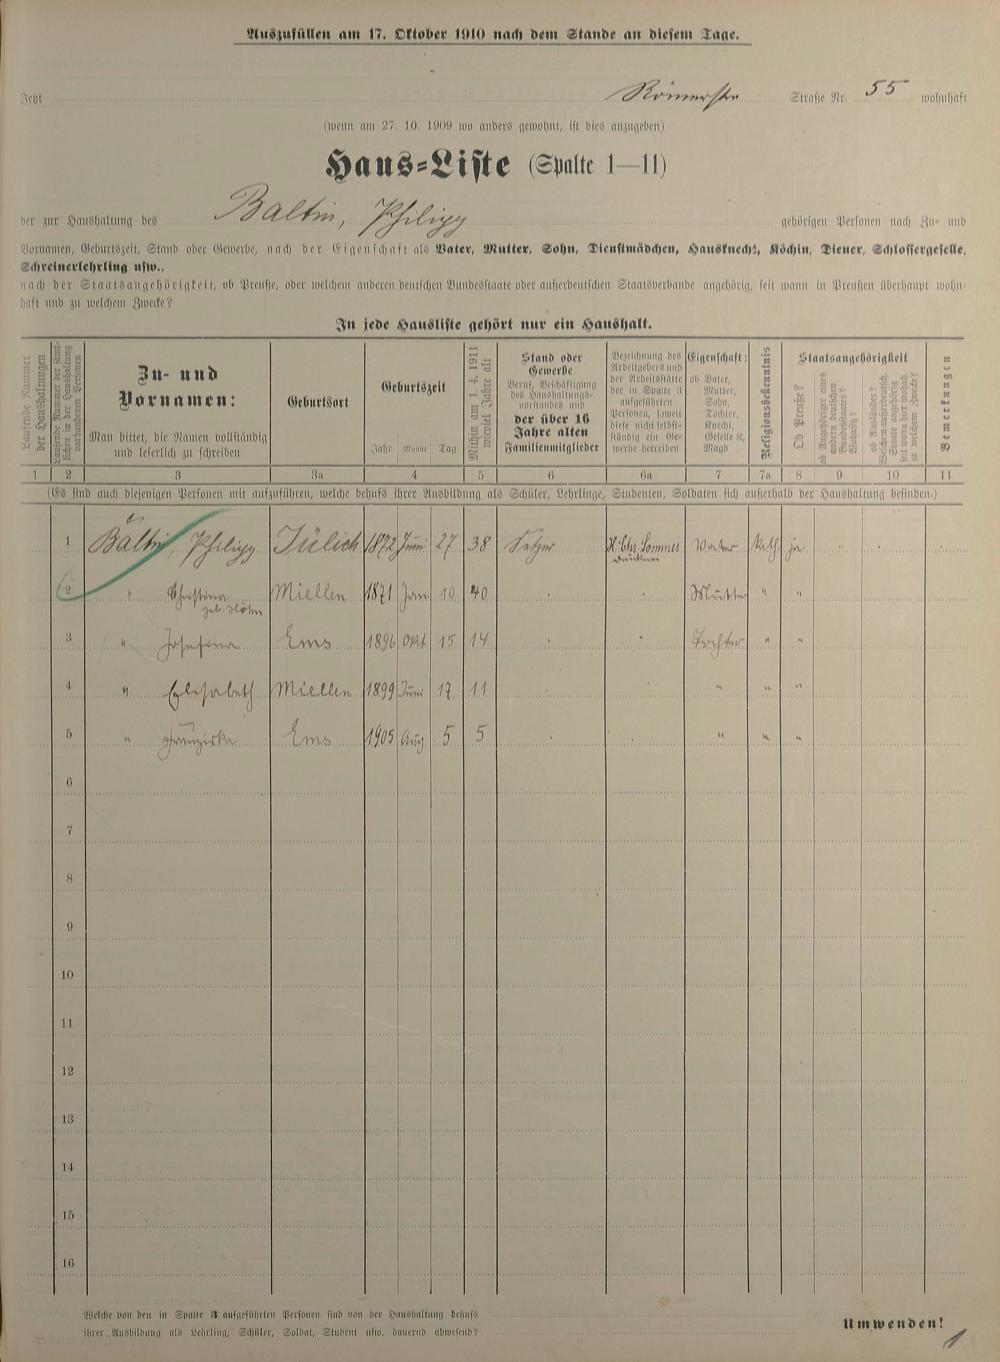 Auszufüllen am 17. Oktober 1910 nach dem Stande an diesem Tage.
Jetzt Römerstr Straße Nr. 55 wohnhaft
(wenn am 27. 10. 1909 wo anders gewohnt, ist dies anzugeben)
Haus-Liste (Spalte 1—11)
der zur Haushaltung des Baltin, Philipp gehörigen Personen nach Zu- und
Vornamen, Geburtszeit, Stand oder Gewerbe, nach der Eigenschaft als Vater, Mutter, Sohn, Dienstmädchen, Hausknecht, Köchin, Diener, Schlossergeselle,
Schreinerlehrling usw.,
nach der Staatsangehörigkeit, ob Preuße, oder welchem anderen deutschen Bundesstaate oder außerdeutschen Staatsverbande angehörig, seit wann in Preußen überhaupt wohn-
haft und zu welchem Zwecke?
In jede Hausliste gehört nur ein Haushalt.
Laufende Nummer
der Haushaltungen
Laufende Nummer der sämt-
lichen in der Haushaltung
vorhandenen Personen
Zu- und
Vornamen:
Man bittet, die Namen vollständig
und leserlich zu schreiben
Geburtsort
Geburtszeit
Jahr Monat Tag
Mithin am 1. 4. 1911
wieviel Jahre alt
Stand oder
Gewerbe
Beruf, Beschäftigung
des Haushaltungs-
vorstandes und
der über 16
Jahre alten
Familienmitglieder
Bezeichnung des
Arbeitgebers und
der Arbeitsstätte
der in Spalte 3
aufgeführten
Personen, soweit
diese nicht selbst-
ständig ein Ge-
werbe betreiben
Eigenschaft:
ob Vater,
Mutter,
Sohn,
Tochter,
Knecht,
Geselle ꝛc,
Magd
Religionsbekenntnis
Staatsangehörigkeit
Ob Preuße?
ob Angehöriger eines
andern deutschen
Bundesstaates?
Welchem außerdeutsch.
Staate angehörig
seit wann hier wohnh.
zu welchem Zwecke?
Bemerkungen
1 2 3 3a 4 5 6 6a 7 7a 8 9 10 11
(Es sind auch diejenigen Personen mit aufzuführen, welche behufs ihrer Ausbildung als Schüler, Lehrlinge, Studenten, Soldaten sich außerhalb der Haushaltung befinden.)
1 Baltin, Philipp Jülich 1872 Juni 27 38 Setzer Sommer Vater Kath. ja
Druckerei
2 " Christina Miellen 1871 Jan 10 40 Mutter " "
geb.
3 " Josefina Ems 1896 Okt 15 14 Tochter " "
4 " Elisabeth Miellen 1899 Juni 17 11 " " "
5 " Franziska Ems 1905 Aug 5 5 " " "
6
7
8
9
10
11
12
13
14
15
16
Welche von den in Spalte 3 aufgeführten Personen sind von der Haushaltung behufs
ihrer Ausbildung als Lehrling, Schüler, Soldat, Student usw. dauernd abwesend?
Umwenden!
1